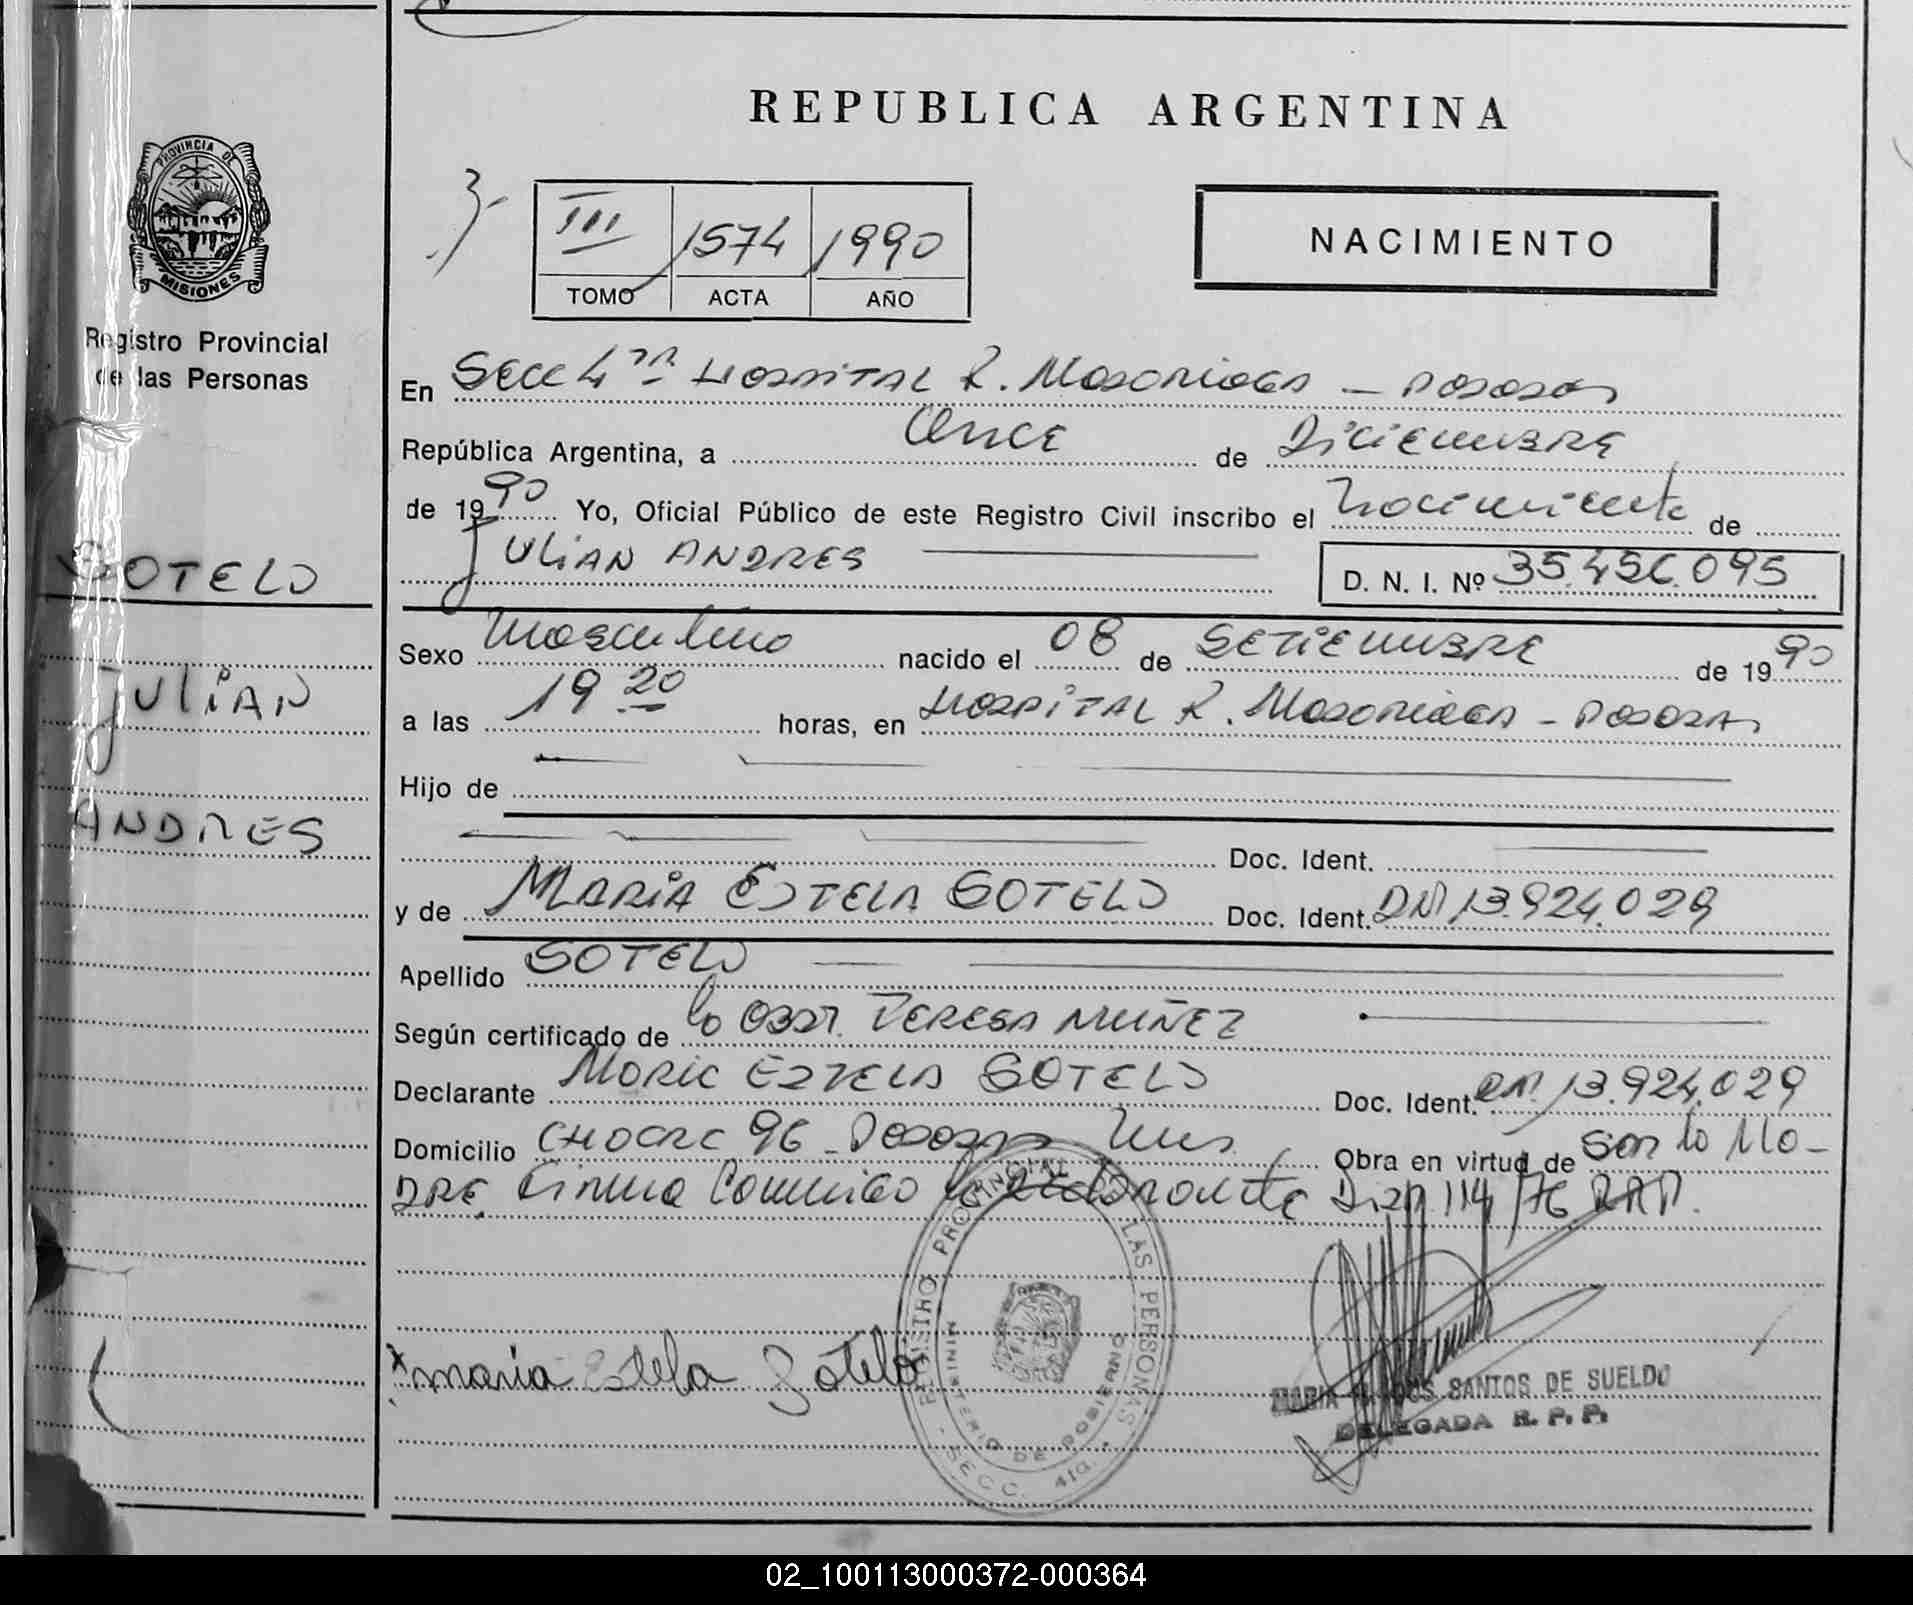 REPUBLICA ARGENTINA
PROVINCIA DE
MISIONES
Registro Provincial
de las Personas
III 1574 1990
TOMO ACTA AÑO
NACIMIENTO
En Secc 4ta Hospital R. Madariaga - Posadas
República Argentina, a Once de Diciembre
de 1990 Yo, Oficial Público de este Registro Civil inscribo el Nacimiento de
JULIAN ANDRES D. N. I. Nº 35.456.095
SOTELO
JULIAN
ANDRES
Sexo Masculino nacido el 08 de Setiembre de 1990
a las 19 20 horas, en Hospital R. Madariaga - Posadas
Hijo de
Doc. Ident.
y de MARIA ESTELA SOTELO Doc. Ident. DNI 13.924.029
Apellido SOTELO
Según certificado de la Obst. TERESA MUÑEZ
Declarante Maria ESTELA SOTELO Doc. Ident. DNI 13.924.029
Domicilio CHACRA 96 - Posadas Mns. Obra en virtud de Ser la Ma-
dre. Firma Conmigo la Declarante Disp. 114/76 RPP.
REGISTRO PROVINCIAL LAS PERSONAS
MINISTERIO DE GOBIERNO
SECC. 4ta.
x maria Estela Sotelo
MARIA DOS SANTOS DE SUELDO
DELEGADA R. P. P.
02_100113000372-000364